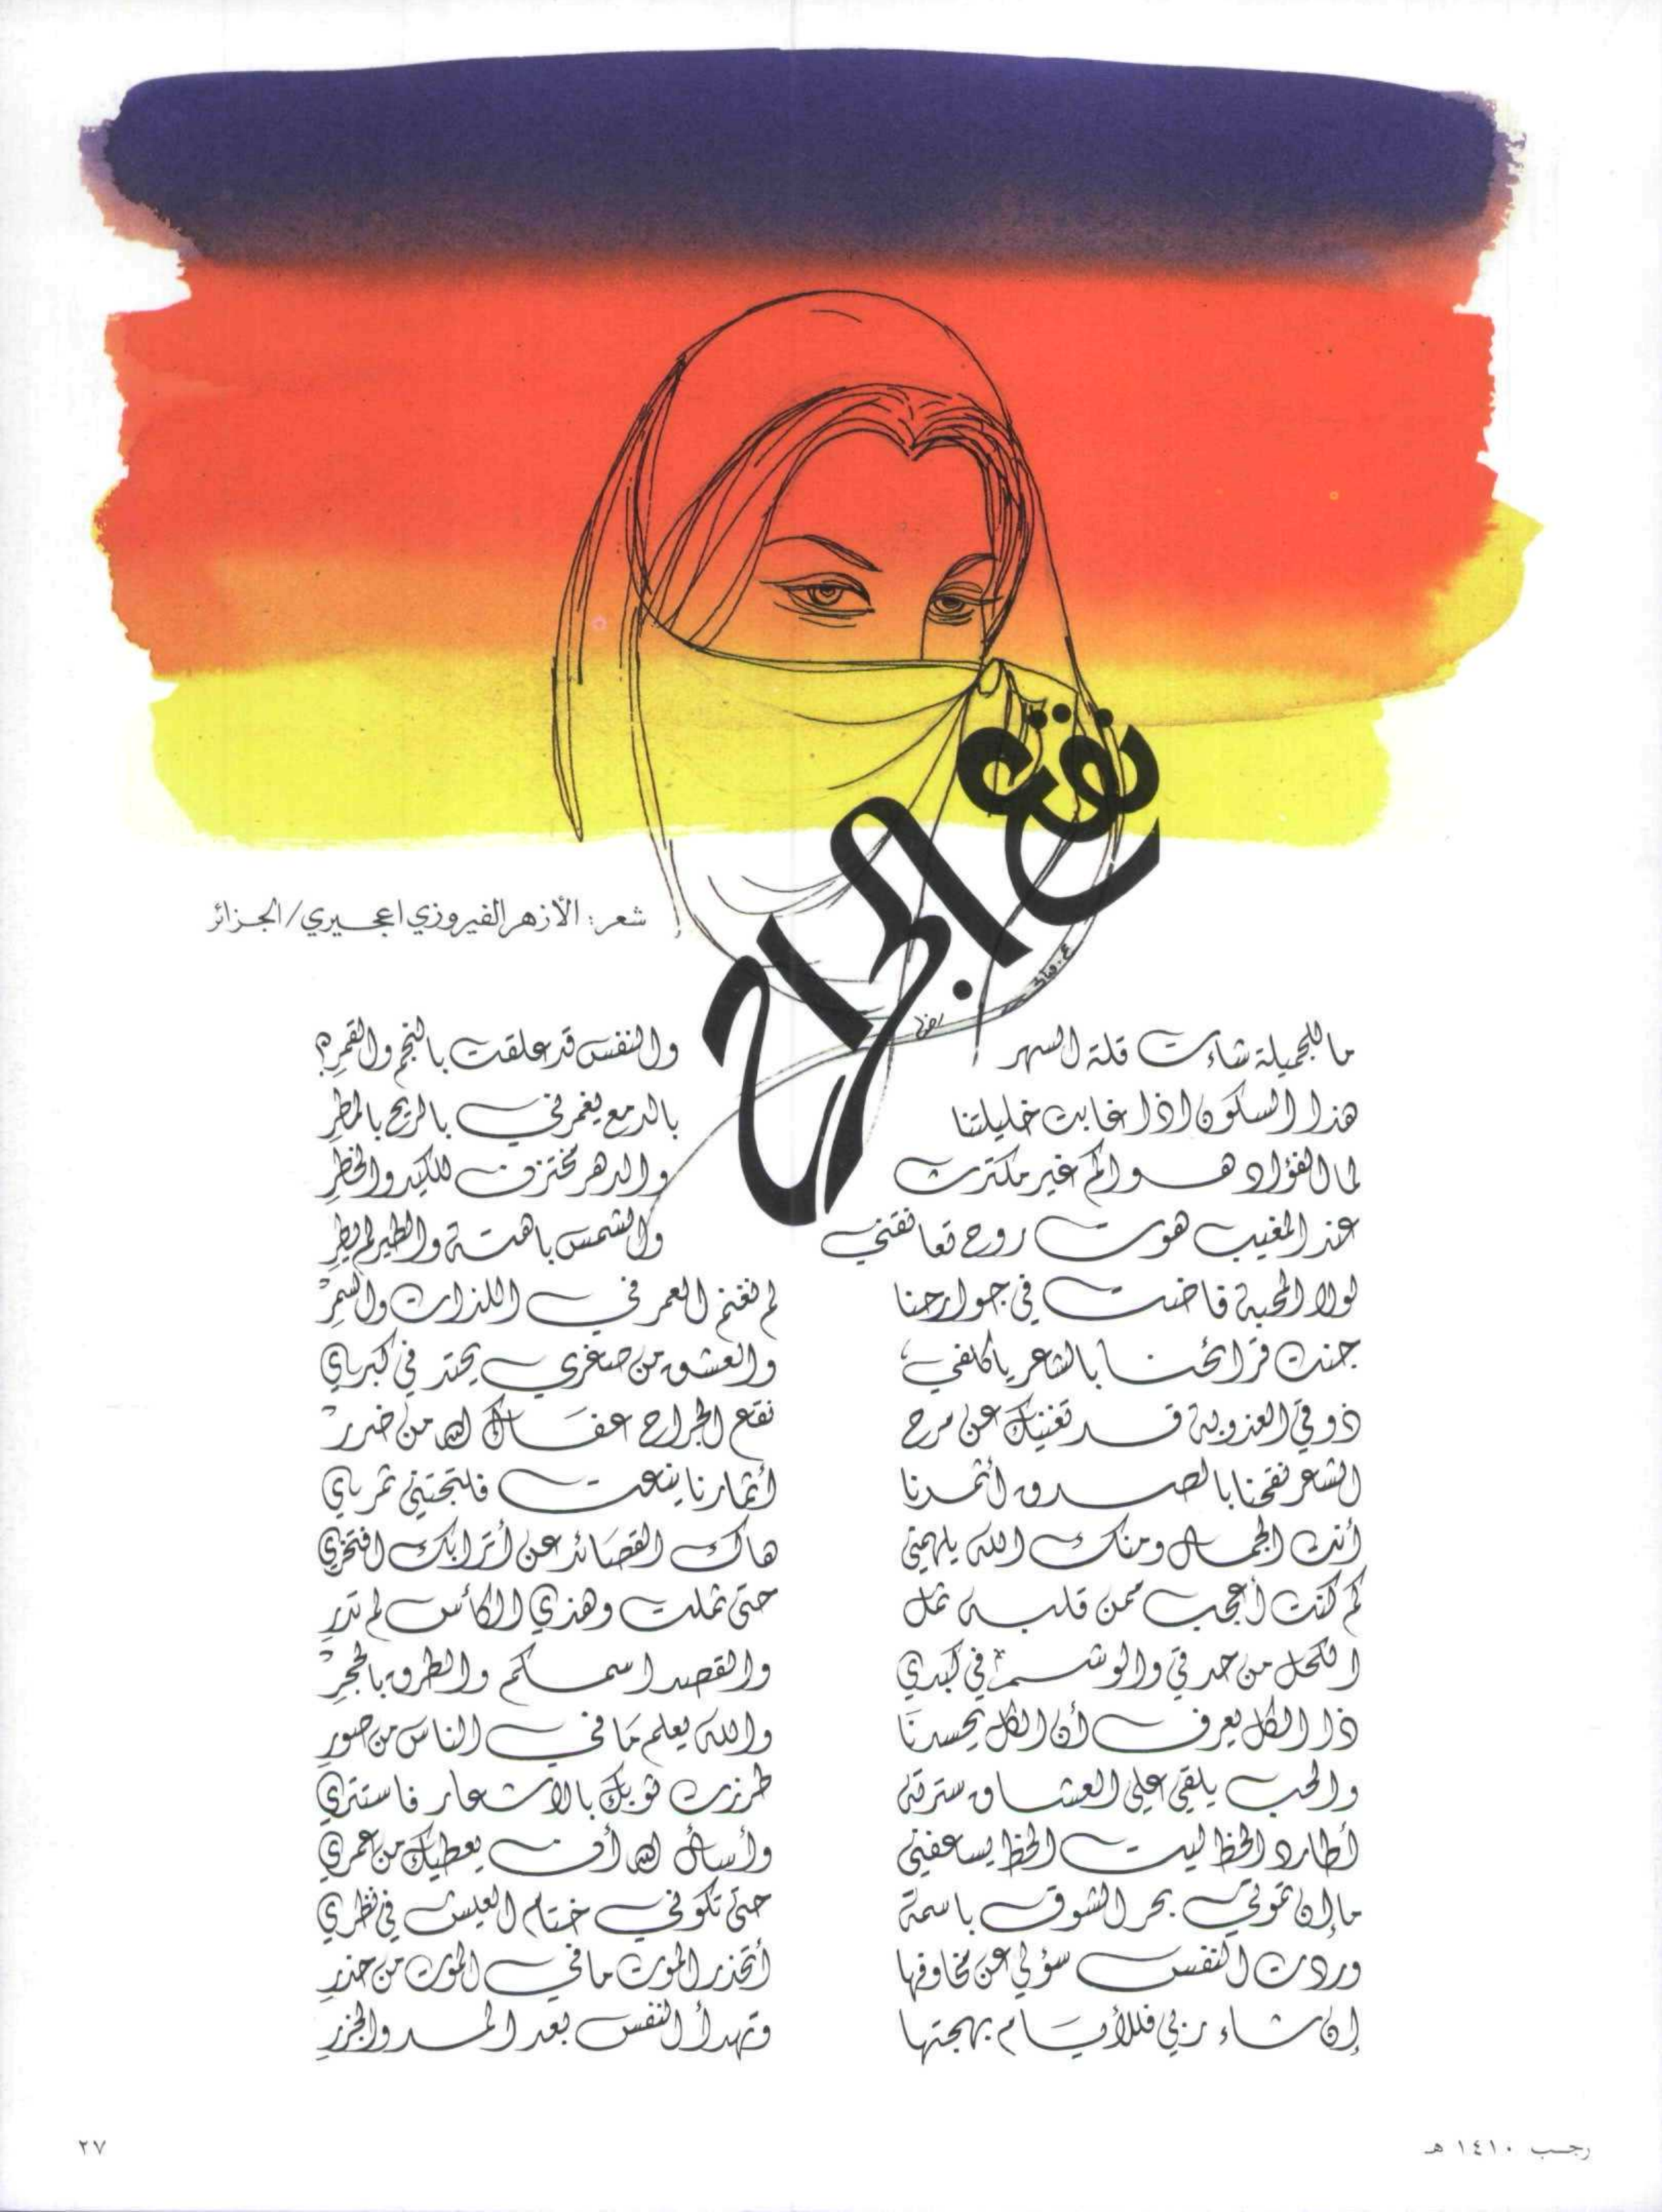 نقع الجراح
شعر: الأزهر الفيروزي اعجيري/الجزائر
ما للجميلة شاءت قلة السهر والنفس قد علقت بالنجم والقمرِ؟
هذا السكون اذا غابت خليلتنا بالدمع يغمرني بالريح بالمطرِ
ما الفؤاد هوالم غير مكترث والدهر مختزن للكيد والخطرِ
عند المغيب هوت روح تعانقني والشمس باهتة والطير لم يطرِ
لولا المحبة فاضت في جوارحنا لم نغنم العمر في اللذات والسمرْ
جنت قرائحنا بالشعر يا كلفي والعشق من صغري يحتد في كبري
ذوقي العذوبة قد تغنيك عن مرح نقع الجراح عفاك الله من ضررْ
الشعر نقحنا بالصدق أثمرنا أثمارنا ينعت فلتجتني ثمري
أنت الجمال ومنك الله يلهمني هاك القصائد عن أترابك افتخري
كم كنت أعجب ممن قلبه ثمل حتى ثملت وهذي الكأس لم تدرِ
الكحل من حدقي والوشم في كبدي والقصد اسمكم والطرق بالحجرْ
ذا الكل يعرف أن الكل يحسدنا والله يعلم مَا في الناس من صورِ
والحب يلقي على العشاق سترته طرزت ثوبك بالاشعار فاستتري
أطارد الحظ ليت الحظ يسعفني وأسأل الله أن يعطيك من عمري
ما إن تموتي بحر الشوق باسمة حتى تكوني ختام العيش في نظري
وردت النفس سؤلي عن مخاوفها أتحذر الموت ما في الموت من حذرِ
إن شاء ربي فللأيام بهجتها وتهدأ النفس بعد المد والجزرِ
رجب ١٤١٠ هـ
٢٧